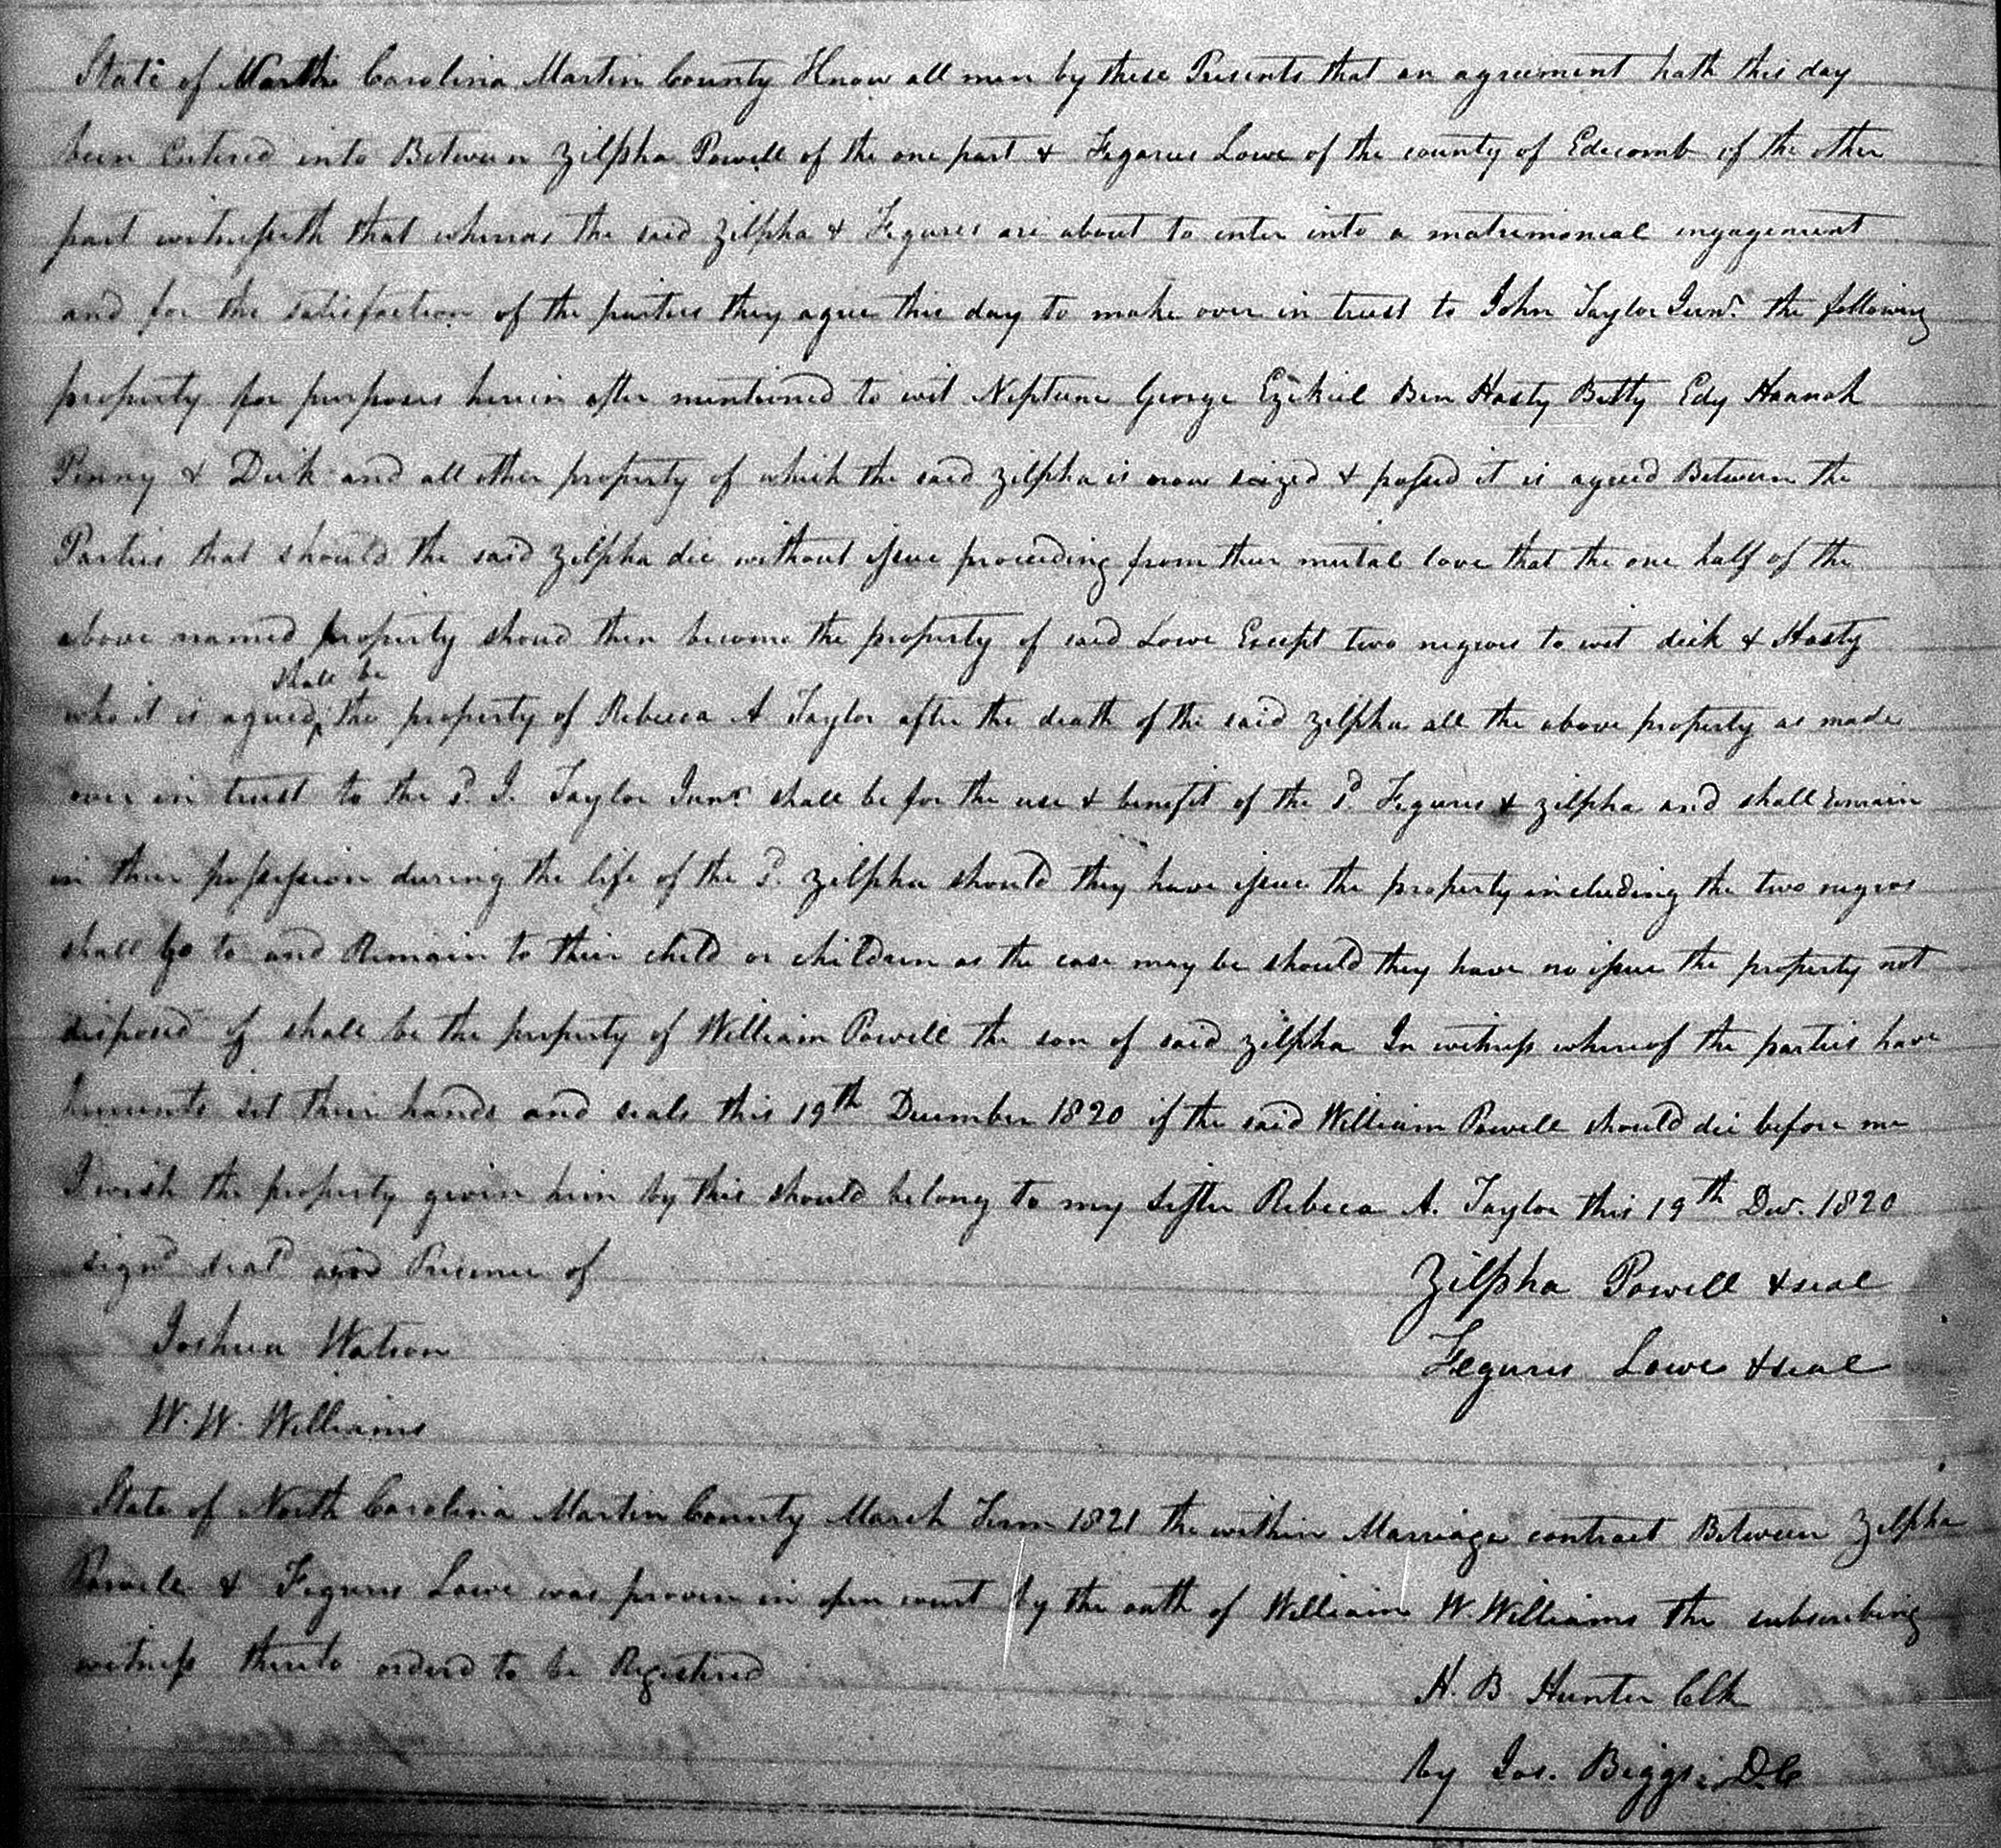 State of North Carolina Martin County Know all men by these Presents that an agreement hath this day
been Entered into Between Zilpha Powell of the one part & Figures Lowe of the county of Edecomb of the other
part witnesseth that whereas the said Zilpha & Figures are about to enter into a matrimonial engagement
and for the satisfaction of the parties they agree this day to make over in trust to John Taylor Junr. the following
property for purposes herein after mentioned to wit Neptune George Ezekiel Ben Hasty Betty Edy Hannah
Penny & Dick and all other property of which the said Zilpha is now seized & possed it is agreed Between the
Parties that should the said Zilpha die without issue proceeding from their mutal love that the one half of the
above named property shoud then become the property of said Lowe Except two negroes to wit dick & Hasty
shall be
who it is agreed, the property of Rebecca A Taylor after the death of the said Zilpha all the above property as made
over in trust to the sd. J. Taylor Junr. shall be for the use & benefit of the sd. Figures & Zilpha and shall remain
in their possession during the life of the sd. Zilpha should they have issue the property including the two negros
shall Go to and Remain to their child or children as the case may be should they have no issue the property not
disposed of shall be the property of William Powell the son of said Zilpha In witness whereof the parties have
hereunto set their hands and seals this 19th December 1820 if the said William Powell should die before me
I wish the property given him by this should belong to my Sister Rebecca A. Taylor this 19th Dec. 1820
signd seald and Presence of
Zilpha Powell & seal
Joshua Watson
Figures Lowe & seal
W. W. Williams
State of North Carolina Martin County March Term 1821 the within Marriage contract Between Zilpha
Powell & Figures Lowe was proven in open court by the oath of William W. Williams the subscribing
witness thereto orderd to be Registered
H. B Hunter Clk
by Jos. Biggs D.C